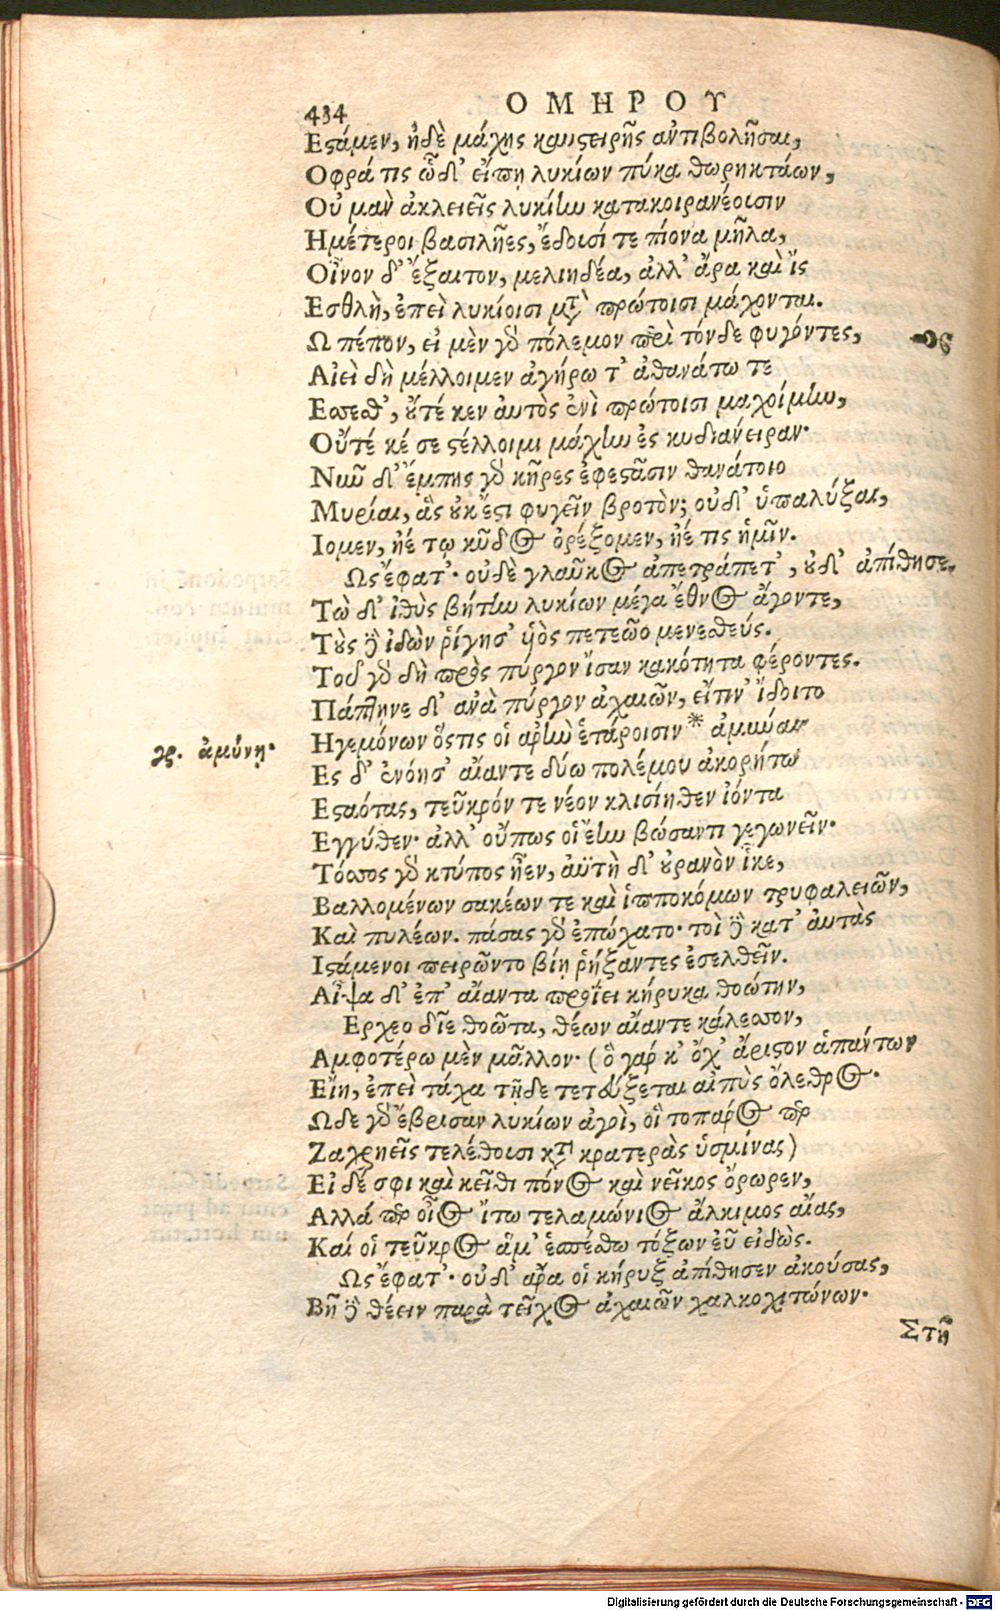 434 ΟΜΗΡΟΥ
Εςάμεν, ἠδὲ μάχης καυςειρῆς ἀντιβολῆσαι,
Οφρά τις ὧδ' εἴπῃ λυκίων πύκα θωρηκτάων,
Οὐ μὰν ἀκλειεῖς λυκίην κατακοιρανέουσιν
Ημέτεροι βασιλῆες, ἔδουσί τε πίονα μῆλα,
Οἶνον δ' ἔξαιτον, μελιηδέα, ἀλλ' ἄρα καὶ ἲς
Εσθλὴ, ἐπεὶ λυκίοισι μετὰ πρώτοισι μάχονται.
Ω πέπον, εἰ μὲν γὰρ πόλεμον περὶ τόνδε φυγόντες,
Αἰεὶ δὴ μέλλοιμεν ἀγήρω τ' ἀθανάτω τε
Εσσεθ', ούτέ κεν αὐτὸς ἐνὶ πρώτοισι μαχοίμην,
Οὔτέ κέ σε ςέλλοιμι μάχην ἐς κυδιάνειραν·
Νῦν δ' ἔμπης γὰρ κῆρες ἐφεςᾶσιν θανάτοιο
Μυρίαι, ἃς οὐκ ἔςι φυγεῖν βροτὸν; οὐδ' ὑπαλύξαι,
Ιομεν, ἠέ τῳ κῦδος ὀρέξομεν, ἠέ τις ἡμῖν.
Ως ἔφατ'· οὐδὲ γλαῦκος ἀπετράπετ', οὐδ' ἀπίθησε.
Τὼ δ' ἰθὺς βήτην λυκίων μέγα ἔθνος ἄγοντε,
Τοὺς δὲ ἰδὼν ῥίγησ' υἱὸς πετεῶο μενεσθεύς.
Τοῦ γὰρ δὴ πρὸς πύργον ἴσαν κακότητα φέροντες.
Πάπτηνε δ' ἀνὰ πύργον ἀχαιῶν, εἴτιν' ἴδοιτο
Ηγεμόνων ὅςτις οἱ ἀρὴν ἑτάροισιν * ἀμύναι
γρ. ἀμύνῃ·
Ες δ' ἐνόησ' αἴαντε δύω πολέμου ἀκορήτω
Εςαότας, τεῦκρόν τε νέον κλισίηθεν ἰόντα
Εγγύθεν· ἀλλ' οὔπως οἱ ἔην βώσαντι γεγωνεῖν·
Τόσσος γὰρ κτύπος ἦεν, ἀϋτὴ δ' οὐρανὸν ἷκε,
Βαλλομένων σακέων τε καὶ ἱπποκόμων τρυφαλειῶν,
Καὶ πυλέων. πάσας γὰρ ἐπώχατο· τοὶ δὲ κατ' ἀυτὰς
Ιςάμενοι πειρῶντο βίῃ ῥήξαντες ἐσελθεῖν.
Αἶψα δ' ἐπ' αἴαντα προΐει κήρυκα θοώτην,
Ερχεο δῖε θοῶτα, θέων αἴαντε κάλεσσον,
Αμφοτέρω μὲν μᾶλλον· (ὃ γάρ κ' ὄχ' ἄριςον ἁπάντων
Εἴη, ἐπεὶ τάχα τῇδε τετεύξεται αἰπὺς ὄλεθρος·
Ωδε γὰρ ἔβρισαν λυκίων ἀγοὶ, οἳ τοπάρος περ
Ζαχρηεῖς τελέθουσι κατὰ κρατερὰς ὑσμίνας)
Εἰ δέ σφι καὶ κεῖθι πόνος καὶ νεῖκος ὄρωρεν,
Αλλά περ οἶος ἴτω τελαμώνιος ἄλκιμος αἴας,
Καί οἱ τεῦκρος ἅμ' ἑσπέσθω τόξων εὖ εἰδώς.
Ως ἔφατ'· οὐδ' ἄρα οἱ κήρυξ ἀπίθησεν ἀκούσας,
Βῆ δὲ θέειν παρὰ τεῖχος ἀχαιῶν χαλκοχιτώνων·
Στῆ
Digitalisierung gefördert durch die Deutsche Forschungsgemeinschaft - DFG